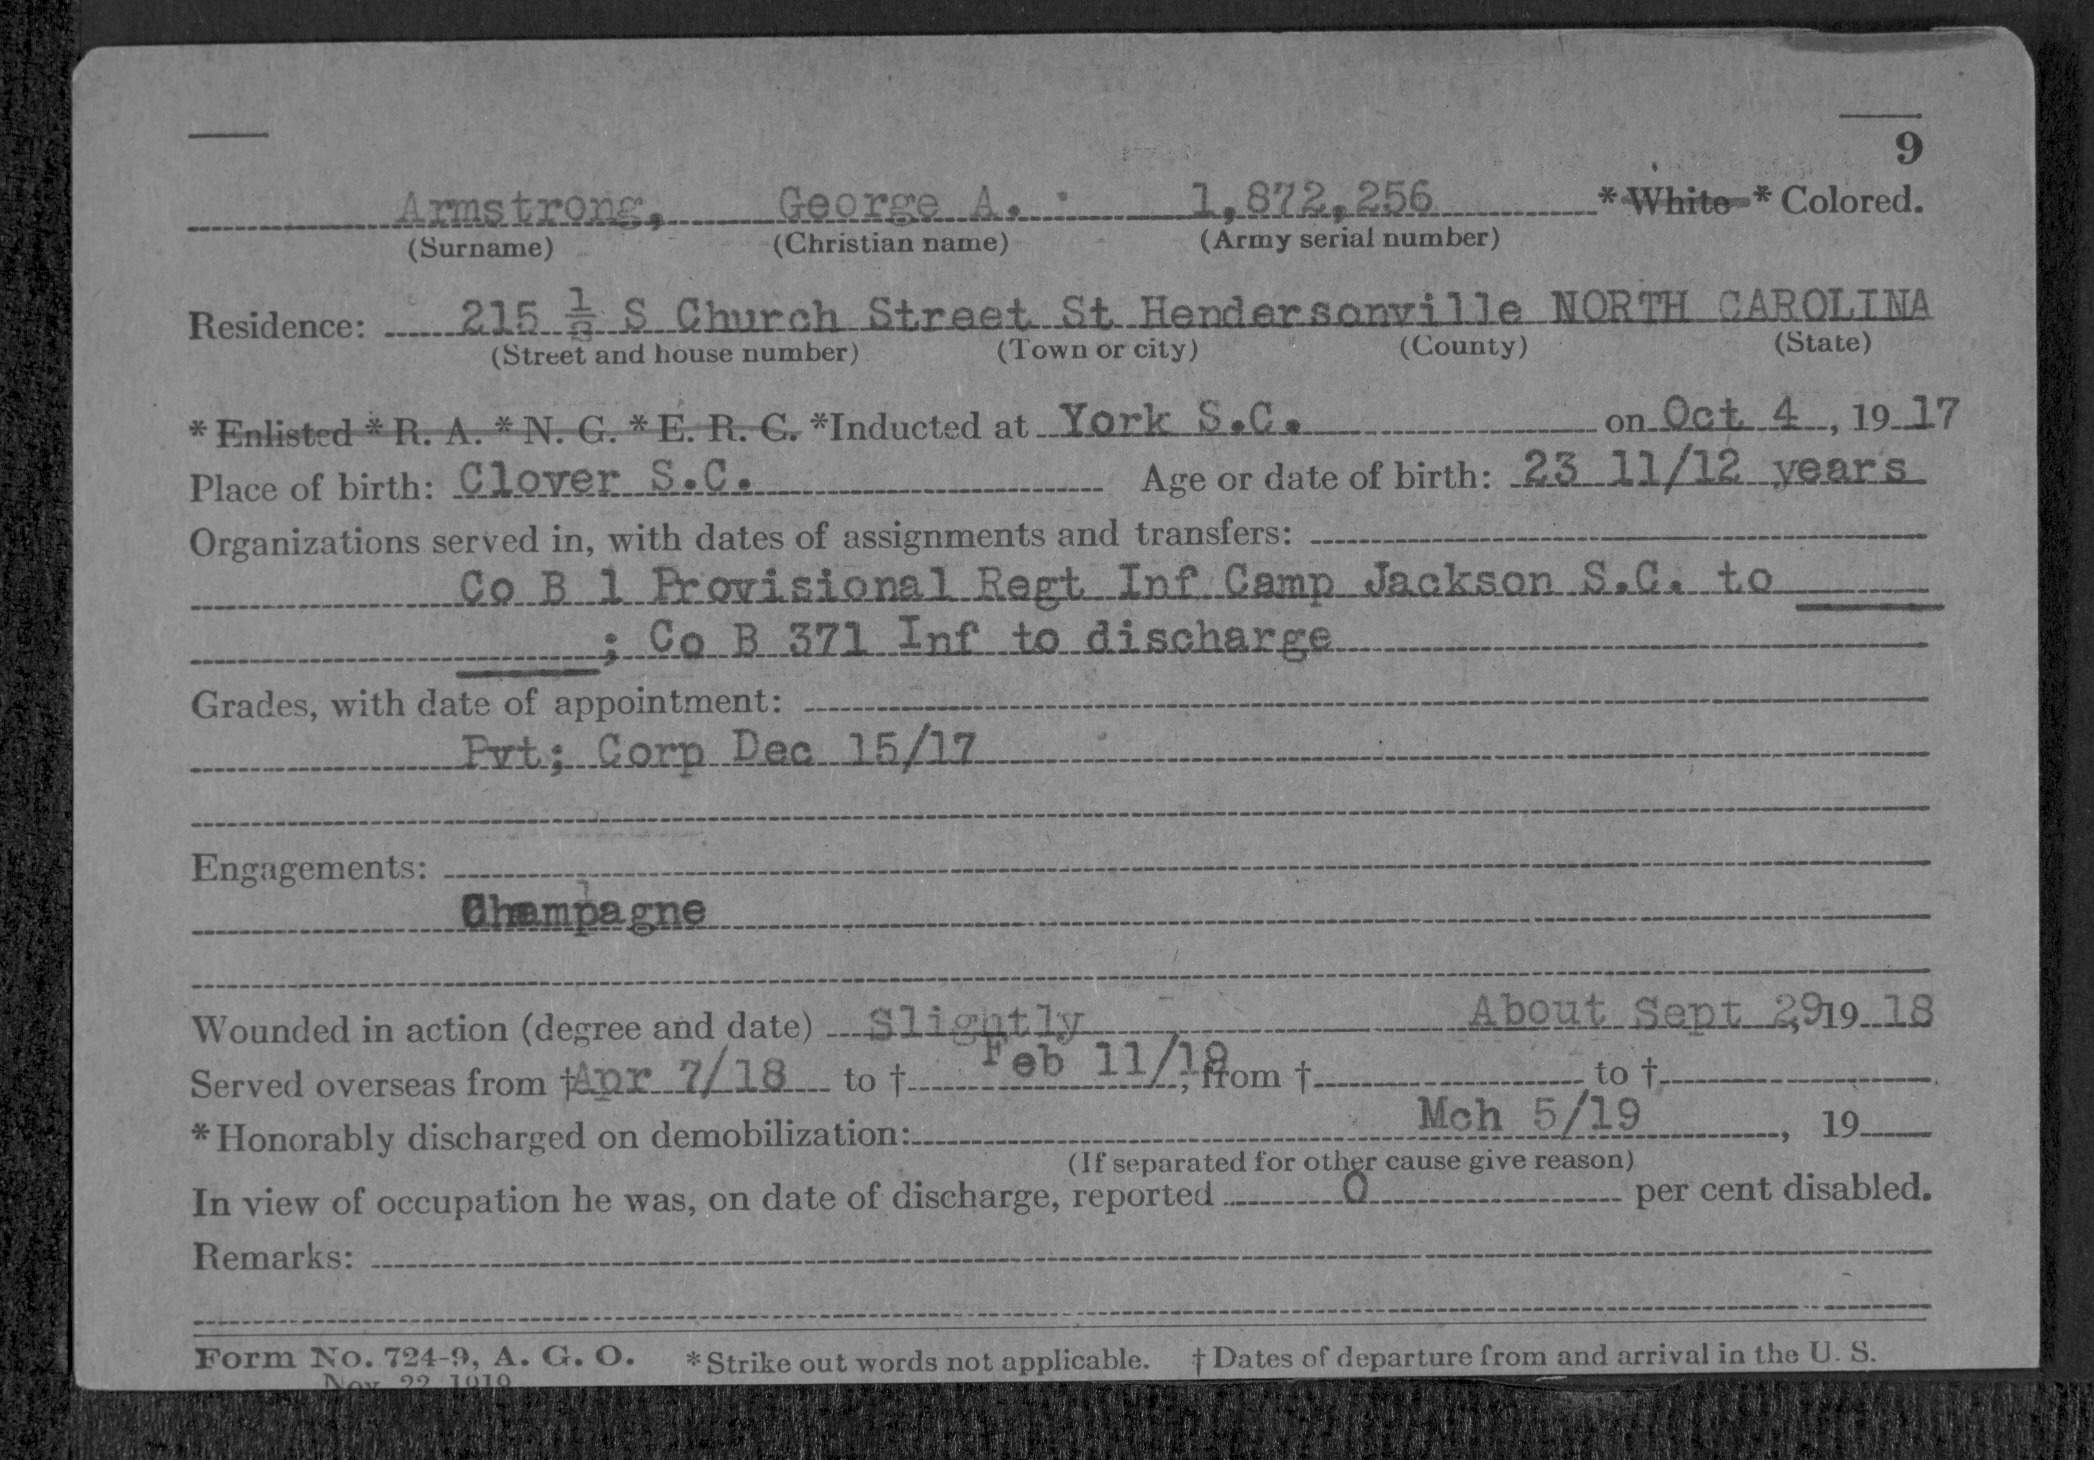 9
Armstrong, George A. 1,872,256 * White * Colored.
(Surname) (Christian name) (Army serial number)
Residence: 215 1/2 S Church Street St Hendersonville NORTH CAROLINA
(Street and house number) (Town or city) (County) (State)
* Enlisted * R. A. * N. G. * E. R. C. *Inducted at York S.C. on Oct 4, 19 17
Place of birth: Clover S.C. Age or date of birth: 23 11/12 years
Organizations served in, with dates of assignments and transfers:
Co B 1 Provisional Regt Inf Camp Jackson S.C. to
; Co B 371 Inf to discharge
Grades, with date of appointment:
Pvt; Corp Dec 15/17
Engagements:
Champagne
Wounded in action (degree and date) Slightly About Sept 29, 19 18
Served overseas from † Apr 7/18 to † Feb 11/19, from † to †
* Honorably discharged on demobilization: Mch 5/19, 19
(If separated for other cause give reason)
In view of occupation he was, on date of discharge, reported 0 per cent disabled.
Remarks:
Form No. 724-9, A. G. O. * Strike out words not applicable. † Dates of departure from and arrival in the U. S.
Nov. 22, 1919